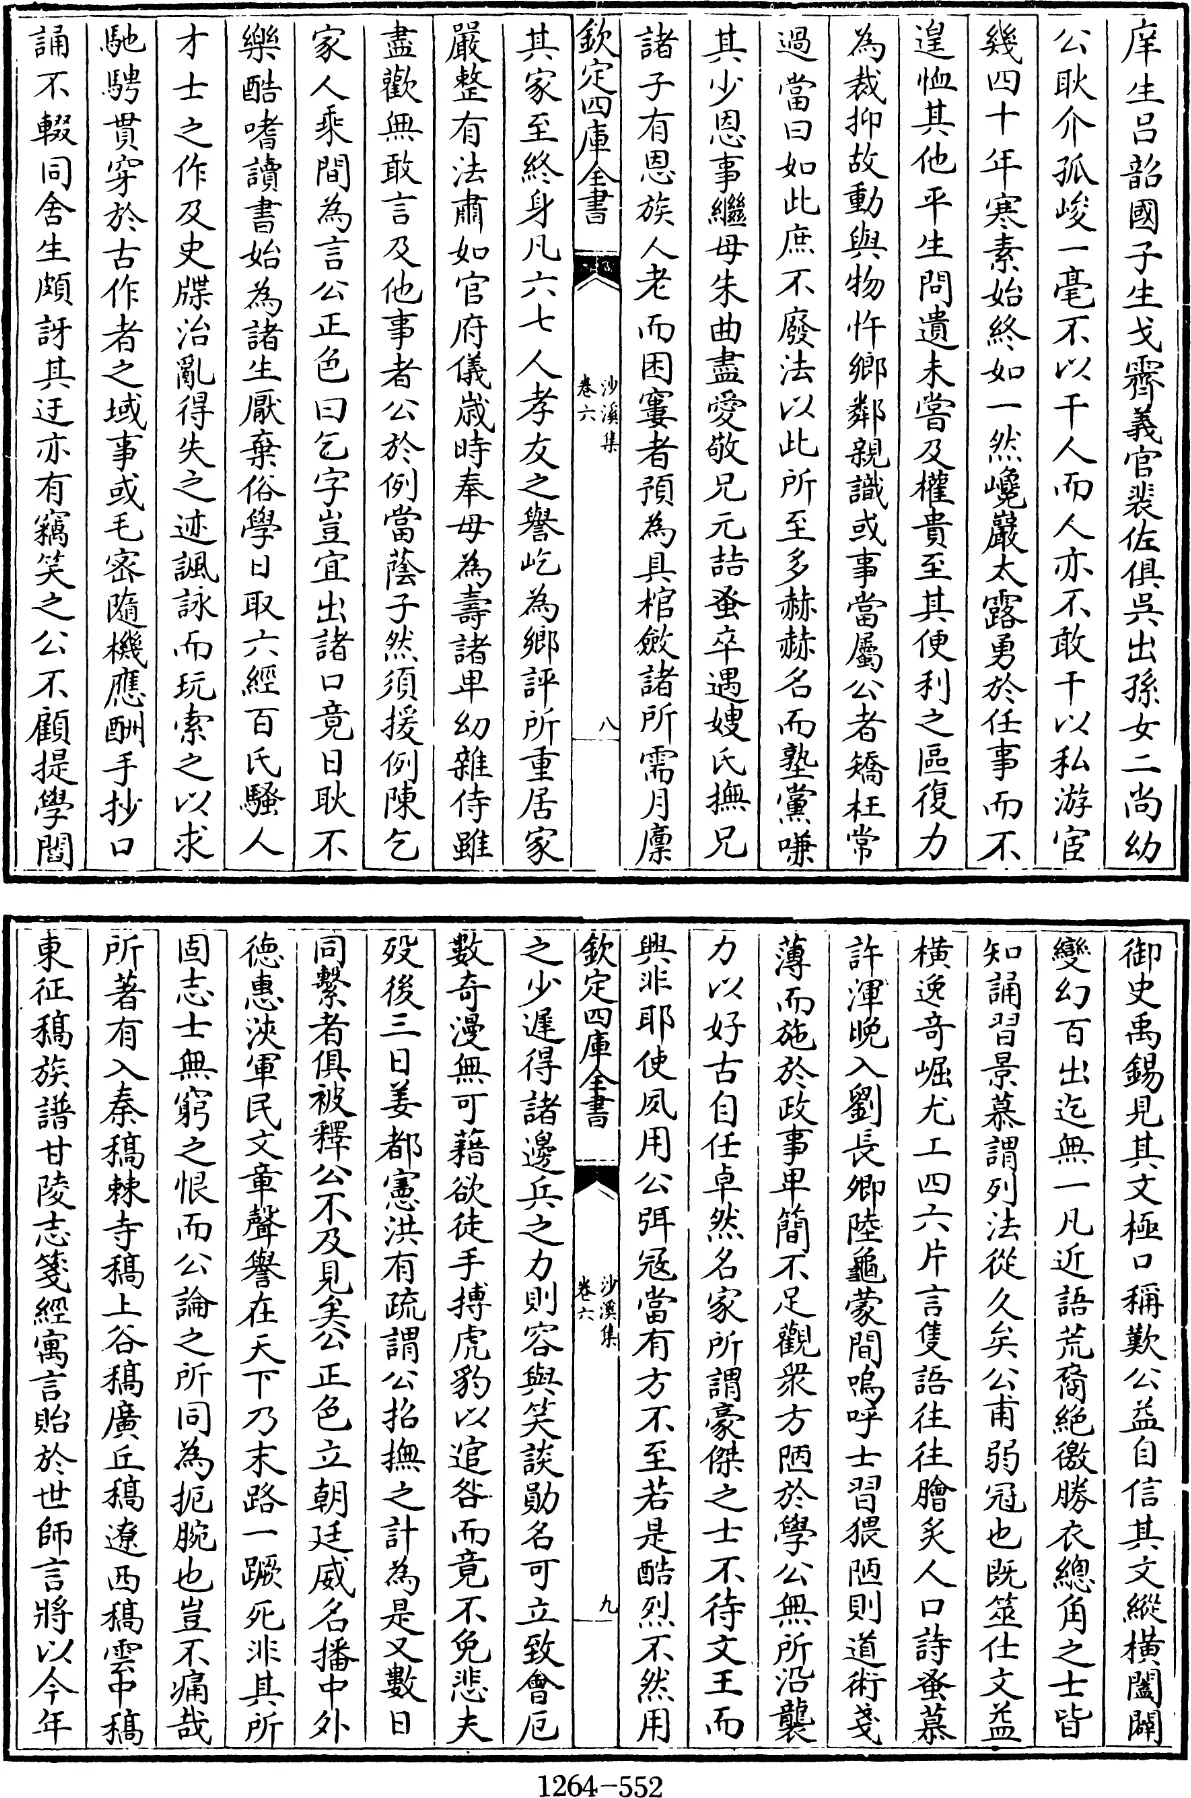 庠生吕韶國子生戈霽義官裴佐俱吳出孫女二尚幼
公耿介孤峻一毫不以干人而人亦不敢干以私游宦
幾四十年寒素始終如一然巉巖太露勇於任事而不
遑恤其他平生問遺未嘗及權貴至其便利之區復力
為裁抑故動與物忤鄉鄰親識或事當屬公者矯枉常
過當曰如此庶不廢法以此所至多赫赫名而塾黨嗛
其少恩事繼母朱曲盡愛敬兄元喆蚤卒遇嫂氏撫兄
諸子有恩族人老而困窶者預為具棺斂諸所需月廪
欽定四庫全書
沙溪集
卷六
八
其家至終身凡六七人孝友之譽屹為鄉評所重居家
嚴整有法肅如官府儀歲時奉母為壽諸卑幼雜侍雖
盡歡無敢言及他事者公於例當蔭子然須援例陳乞
家人乘間為言公正色曰乞字豈宜出諸口竟日耿不
樂酷嗜讀書始為諸生厭棄俗學日取六經百氏騷人
才士之作及史牒治亂得失之迹諷詠而玩索之以求
馳騁貫穿於古作者之域事或毛密隨機應酬手抄口
誦不輟同舍生頗訝其迂亦有竊笑之公不顧提學閻
御史禹錫見其文極口稱歎公益自信其文縱橫闔闢
變幻百出迄無一凡近語荒裔絶徼勝衣總角之士皆
知誦習景慕謂列法從久矣公甫弱冠也既筮仕文益
橫逸竒崛尤工四六片言隻語往往膾炙人口詩蚤慕
許渾晚入劉長卿陸龜蒙間嗚呼士習猥陋則道術淺
薄而施於政事卑簡不足觀衆方陋於學公無所沿襲
力以好古自任卓然名家所謂豪傑之士不待文王而
興非耶使夙用公弭冦當有方不至若是酷烈不然用
欽定四庫全書
沙溪集
卷六
九
之少遲得諸邊兵之力則容與笑談勛名可立致會厄
數奇漫無可藉欲徒手搏虎豹以逭咎而竟不免悲夫
歿後三日姜都憲洪有疏謂公招撫之計為是又數日
同繫者俱被釋公不及見矣公正色立朝廷威名播中外
德惠浹軍民文章聲譽在天下乃末路一蹶死非其所
固志士無窮之恨而公論之所同為扼腕也豈不痛哉
所著有入秦稿棘寺稿上谷稿廣丘稿遼西稿雲中稿
東征稿族譜甘陵志箋經寓言貽於世師言將以今年
1264-552